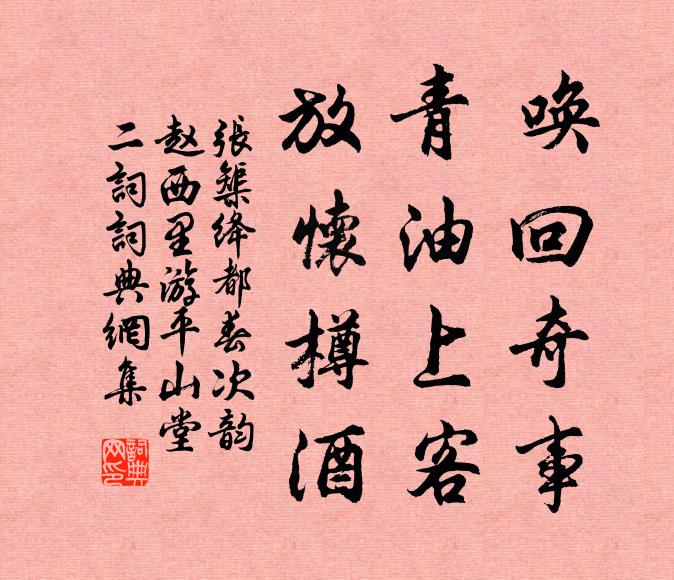 唤回奇事
青油上客
放懷樽酒
張榘绛都春次韵
赵西里游平山堂
二詞詞典網集
詞典网印